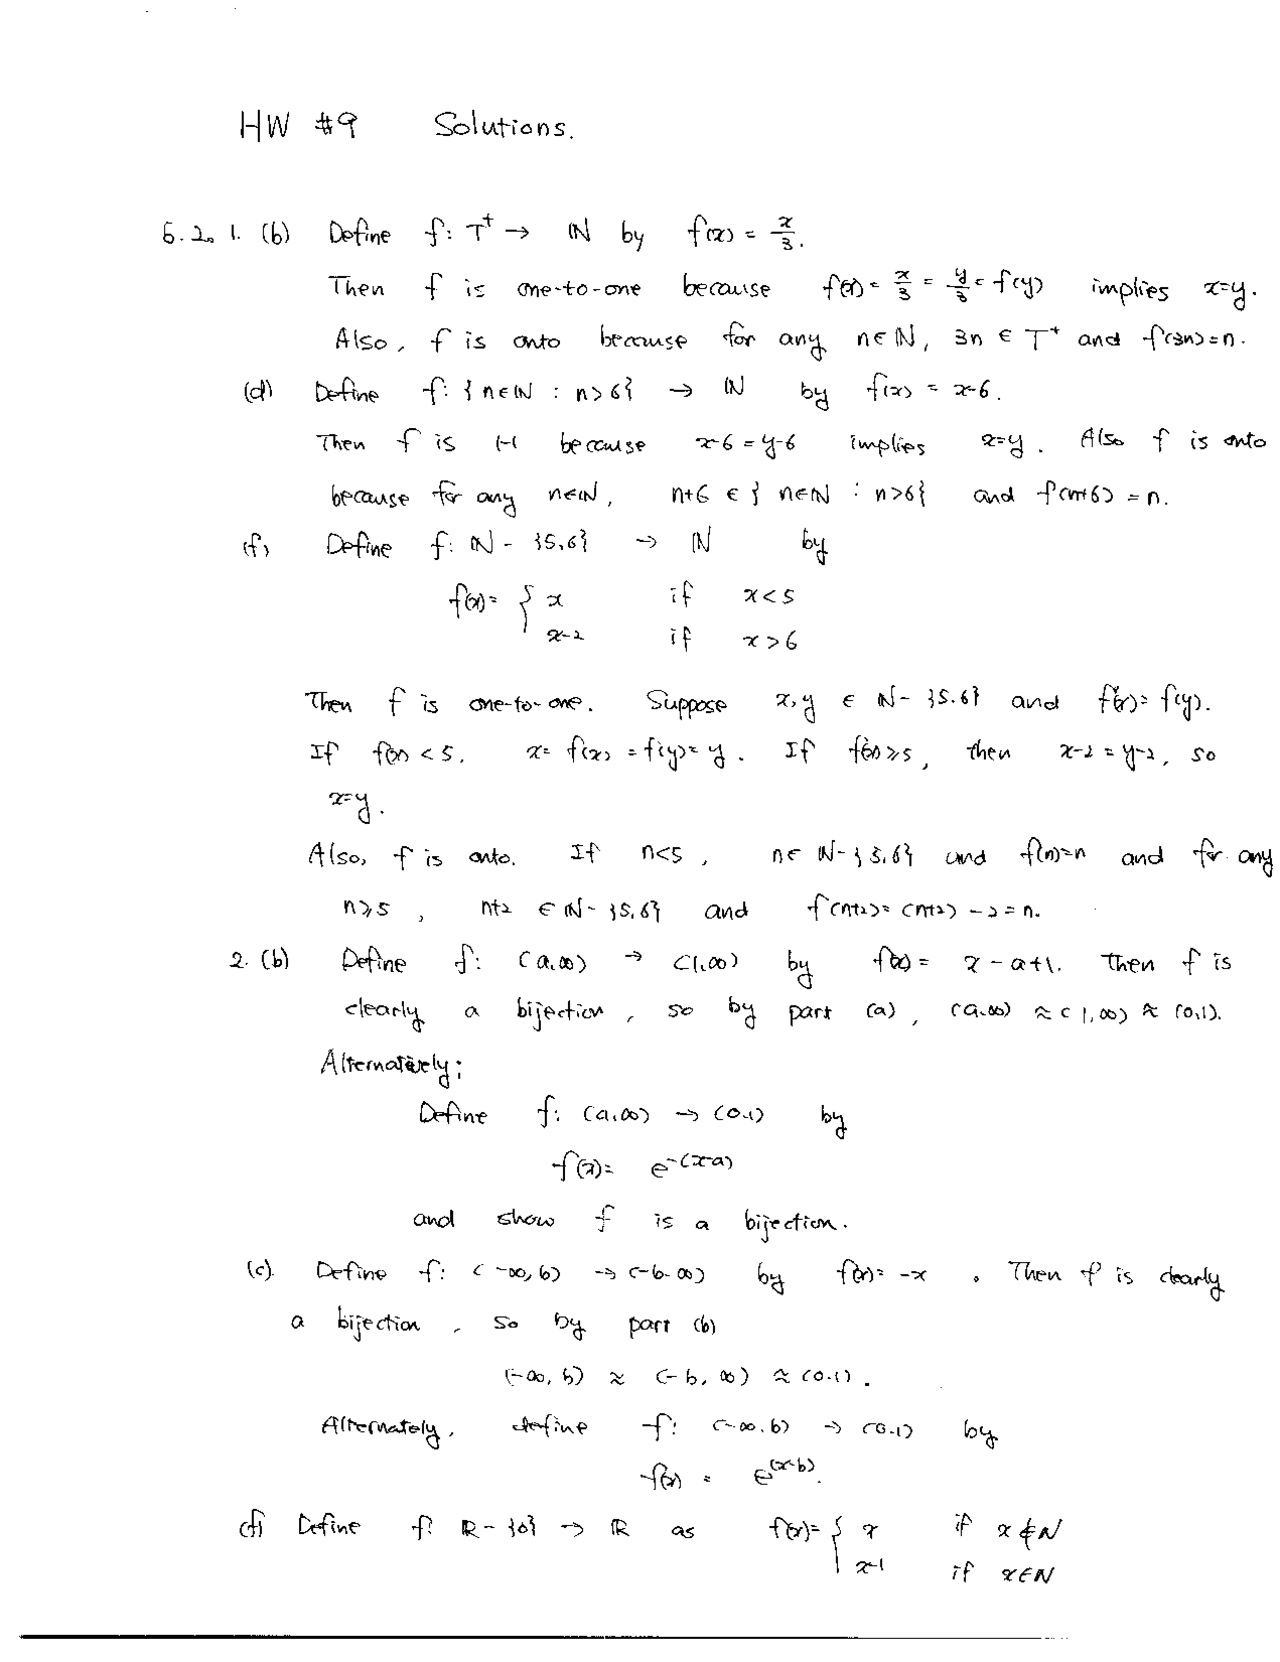 HW #9 Solutions.
5.2. 1. (b) Define f: T⁺ → ℕ by f(x) = x/3.
Then f is one-to-one because f(x) = x/3 = y/3 = f(y) implies x=y.
Also, f is onto because for any n∈ℕ, 3n ∈ T⁺ and f(3n)=n.
(d) Define f: {n∈ℕ : n>6} → ℕ by f(x) = x-6.
Then f is 1-1 because x-6 = y-6 implies x=y. Also f is onto
because for any n∈ℕ, n+6 ∈ {n∈ℕ : n>6} and f(n+6) = n.
(f) Define f: ℕ - {5,6} → ℕ by
f(x) = { x if x<5
x-2 if x>6
Then f is one-to-one. Suppose x,y ∈ ℕ - {5,6} and f(x) = f(y).
If f(x) < 5, x = f(x) = f(y) = y. If f(x) ≥ 5, then x-2 = y-2, so
x=y.
Also, f is onto. If n<5, n∈ ℕ-{5,6} and f(n)=n and for any
n≥5, n+2 ∈ ℕ-{5,6} and f(n+2) = (n+2) -2 = n.
2. (b) Define f: (a,∞) → (1,∞) by f(x) = x-a+1. Then f is
clearly a bijection, so by part (a), (a,∞) ≈ (1,∞) ≈ (0,1).
Alternatively;
Define f: (a,∞) → (0,1) by
f(x) = e^-(x-a)
and show f is a bijection.
(c). Define f: (-∞,b) → (-b,∞) by f(x) = -x. Then f is clearly
a bijection, so by part (b)
(-∞,b) ≈ (-b,∞) ≈ (0,1).
Alternately, define f: (-∞,b) → (0,1) by
f(x) = e^(x-b).
(f) Define f: ℝ - {0} → ℝ as f(x) = { x if x∉ℕ
x-1 if x∈ℕ